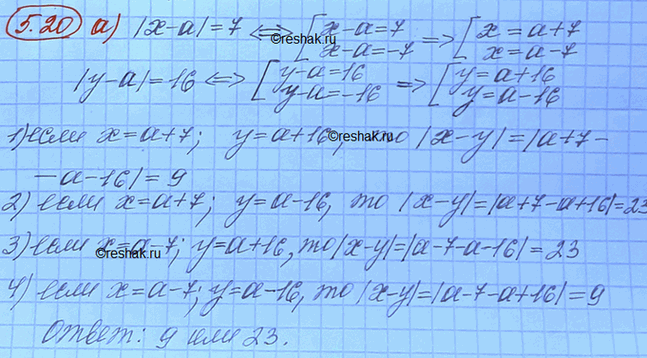 5.20 а) |x-a|=7 <=> [x-a=7 x-a=-7 => [x=a+7 x=a-7
©reshak.ru
|y-a|=16 <=> [y-a=16 y-a=-16 => [y=a+16 y=a-16
1) если x=a+7; y=a+16, то |x-y|=|a+7-
©reshak.ru
-a-16|=9
2) если x=a+7; y=a-16, то |x-y|=|a+7-a+16|=23
3) если x=a-7; y=a+16, то |x-y|=|a-7-a-16|=23
©reshak.ru
4) если x=a-7; y=a-16, то |x-y|=|a-7-a+16|=9
Ответ: 9 или 23.